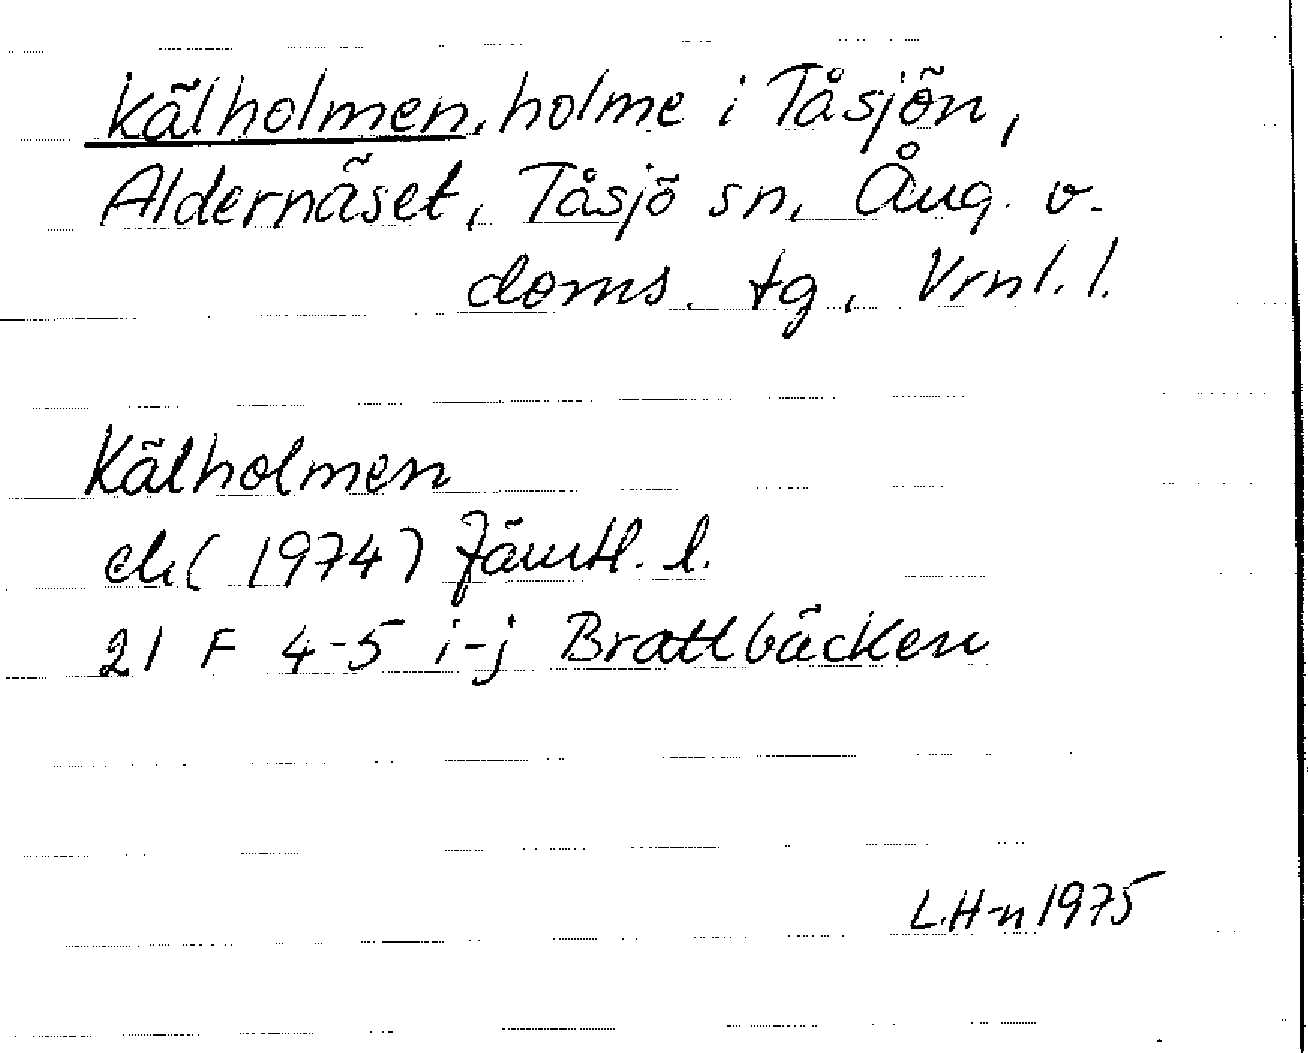 Kälholmen, holme i Tåsjön,
Aldernäset, Tåsjö sn, Ång. v.
doms. tg, Vrnl. l.
Kälholmen
ek (1974) Jämtl. l.
21 F 4-5 i-j Brattbäcken
L.H-n 1975